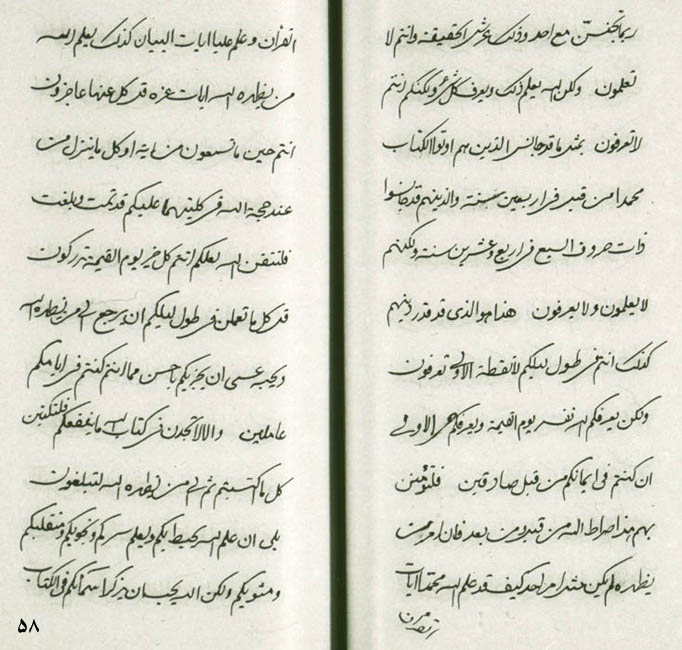 ربما تجنسن مع احد وذلك عرش الحقيقة وانتم لا
تعلمون ولكن الله يعلم ذلك ويعرف كل شئ ولكنكم انتم
لا تعرفون بمثل ما قد جالس الذين هم اوتوا الكتاب
محمدا من قبل فى اربعين سنة والذينهم قد جالسوا
ذات حروف السبع فى اربع وعشرين سنة ولكنهم
لا يعلمون ولا يعرفون هذا هو الذى قد قدر دينهم
كذلك انتم فى طول ليلكم لا نقطة الاولى تعرفون
ولكن يعرفكم الله نفسه يوم القيمة ويعرفكم الاولى
ان كنتم فى ايمانكم من قبل صادقين فلتؤمنن
بهم هذا صراط الله من قبل ومن بعد فان امر من
يظهره لم يكن مثل امر احد كيف قد علم الله محمدا ايات
القران
القران وعلم عليا ايات البيان كذلك يعلم الله
من يظهره الله ايات عزه قد كل عنها عاجزون
انتم حين ما تسمعون من اية او كل ما ينزل من
عند حجة الله فى كلتيهما عليكم قد تمت وبلغت
فلتتقن الله لعلكم انتم كل خير يوم القيمة تدركون
قد كل ما تعملن فى طول ليلكم ان يرجع الى من يظهره الله
ويحبه عسى ان يجزيكم باحسن مما انتم كنتم فى ايامكم
عاملين والا لا تجدن فى كتاب الله ما ينفعكم فلتكتبن
كل ما كسبتم ثم الى من يظهره الله لتبلغون
بلى ان علم الله يحيط بكم ويعلم سركم ونجويكم ومنقلبكم
ومثويكم ولكن الله يحب ان يذكر اسمائكم فى الكتاب
۵۸